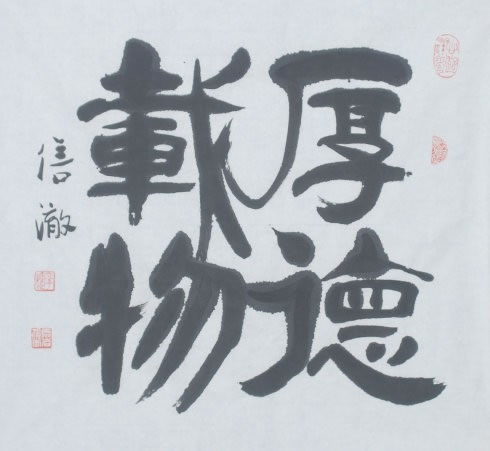 厚德
載物
信澈